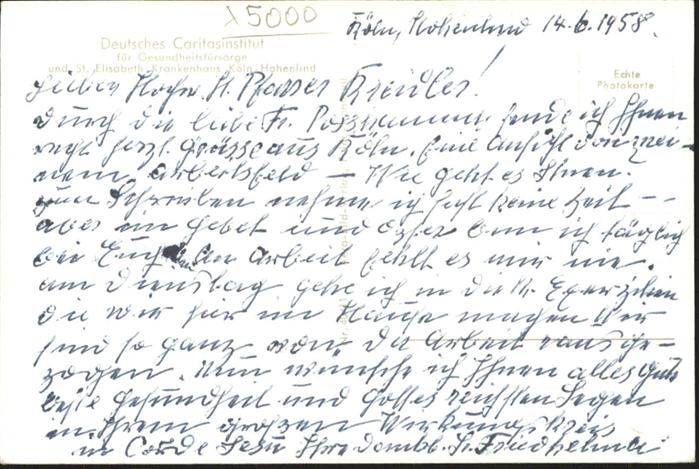 x5000
Köln, Hohenlind 14.6.1958.
Deutsches Caritasinstitut
für Gesundheitsfürsorge
und St. Elisabeth-Krankenhaus Köln-Hohenlind
Echte
Photokarte
Lieber Hochw. H. Pfarrer Kreidler!
Durch die liebe Fr. sende ich Ihnen
recht herzl. Grüsse aus Köln. Eine Ansicht von mei-
nem Arbeitsfeld — Wie geht es Ihnen.
zum Schreiben nehme ich fast keine Zeit - -
aber im Gebet und Opfer bin ich täglich
bei Euch. An Arbeit fehlt es mir nie.
am Dienstag gehe ich in die hl. Exerzitien
die wir hier im Hause machen. Wir
sind so ganz von der Arbeit rausge-
zogen. Nun wünsche ich Ihnen alles Gute
beste Gesundheit und Gottes reichsten Segen
in Ihrem großen Wirkungskreis
in Corde Jesu Ihre dankb. Sr. Friedhelma